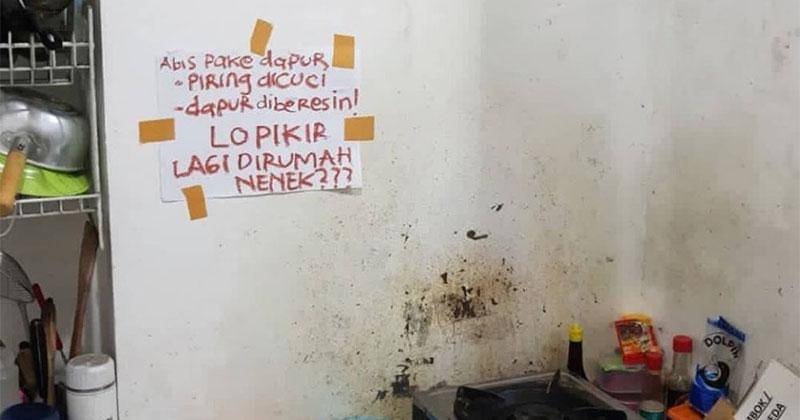 Abis pake dapur
- PiRiNg dicuci
- dapur diberesin!
LO PIKIR
LAGI DIRUMAH
NENEK???
DOLPIN